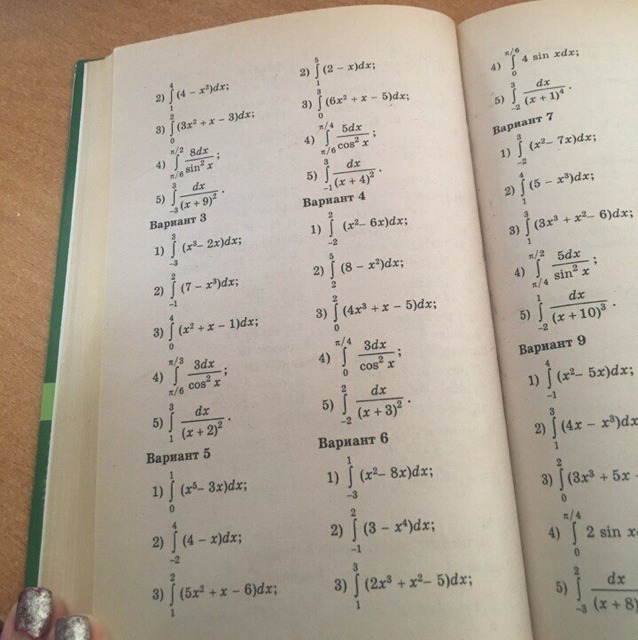 2) ∫₁⁴ (4 − x²)dx;
3) ∫₀² (3x² + x − 3)dx;
4) ∫_{π/6}^{π/2} 8dx/sin² x;
5) ∫₋₃³ dx/(x + 9)².
Вариант 3
1) ∫₋₃³ (x³ − 2x)dx;
2) ∫₋₁² (7 − x³)dx;
3) ∫₀² (x² + x − 1)dx;
4) ∫_{π/6}^{π/3} 3dx/cos² x;
5) ∫₁³ dx/(x + 2)².
Вариант 5
1) ∫₀¹ (x⁵ − 3x)dx;
2) ∫₋₂⁴ (4 − x)dx;
3) ∫₁² (5x² + x − 6)dx;
2) ∫₁⁵ (2 − x)dx;
3) ∫₀³ (6x² + x − 5)dx;
4) ∫_{π/6}^{π/4} 5dx/cos² x;
5) ∫₋₁³ dx/(x + 4)².
Вариант 4
1) ∫₋₂² (x² − 6x)dx;
2) ∫₂⁵ (8 − x²)dx;
3) ∫₀² (4x³ + x − 5)dx;
4) ∫₀^{π/4} 3dx/cos² x;
5) ∫₋₂² dx/(x + 3)².
Вариант 6
1) ∫₋₃¹ (x² − 8x)dx;
2) ∫₋₁² (3 − x⁴)dx;
3) ∫₁³ (2x³ + x² − 5)dx;
4) ∫₀^{π/6} 4 sin xdx;
5) ∫₋₂³ dx/(x + 1)⁴.
Вариант 7
1) ∫₋₂³ (x² − 7x)dx;
2) ∫₁⁴ (5 − x³)dx;
3) ∫₁³ (3x³ + x² − 6)dx;
4) ∫_{π/4}^{π/2} 5dx/sin² x;
5) ∫₋₂¹ dx/(x + 10)³.
Вариант 9
1) ∫₋₁⁴ (x² − 5x)dx;
2) ∫₁³ (4x − x³)dx
3) ∫₀² (3x³ + 5x
4) ∫₀^{π/4} 2 sin x
5) ∫₋₃² dx/(x + 8)